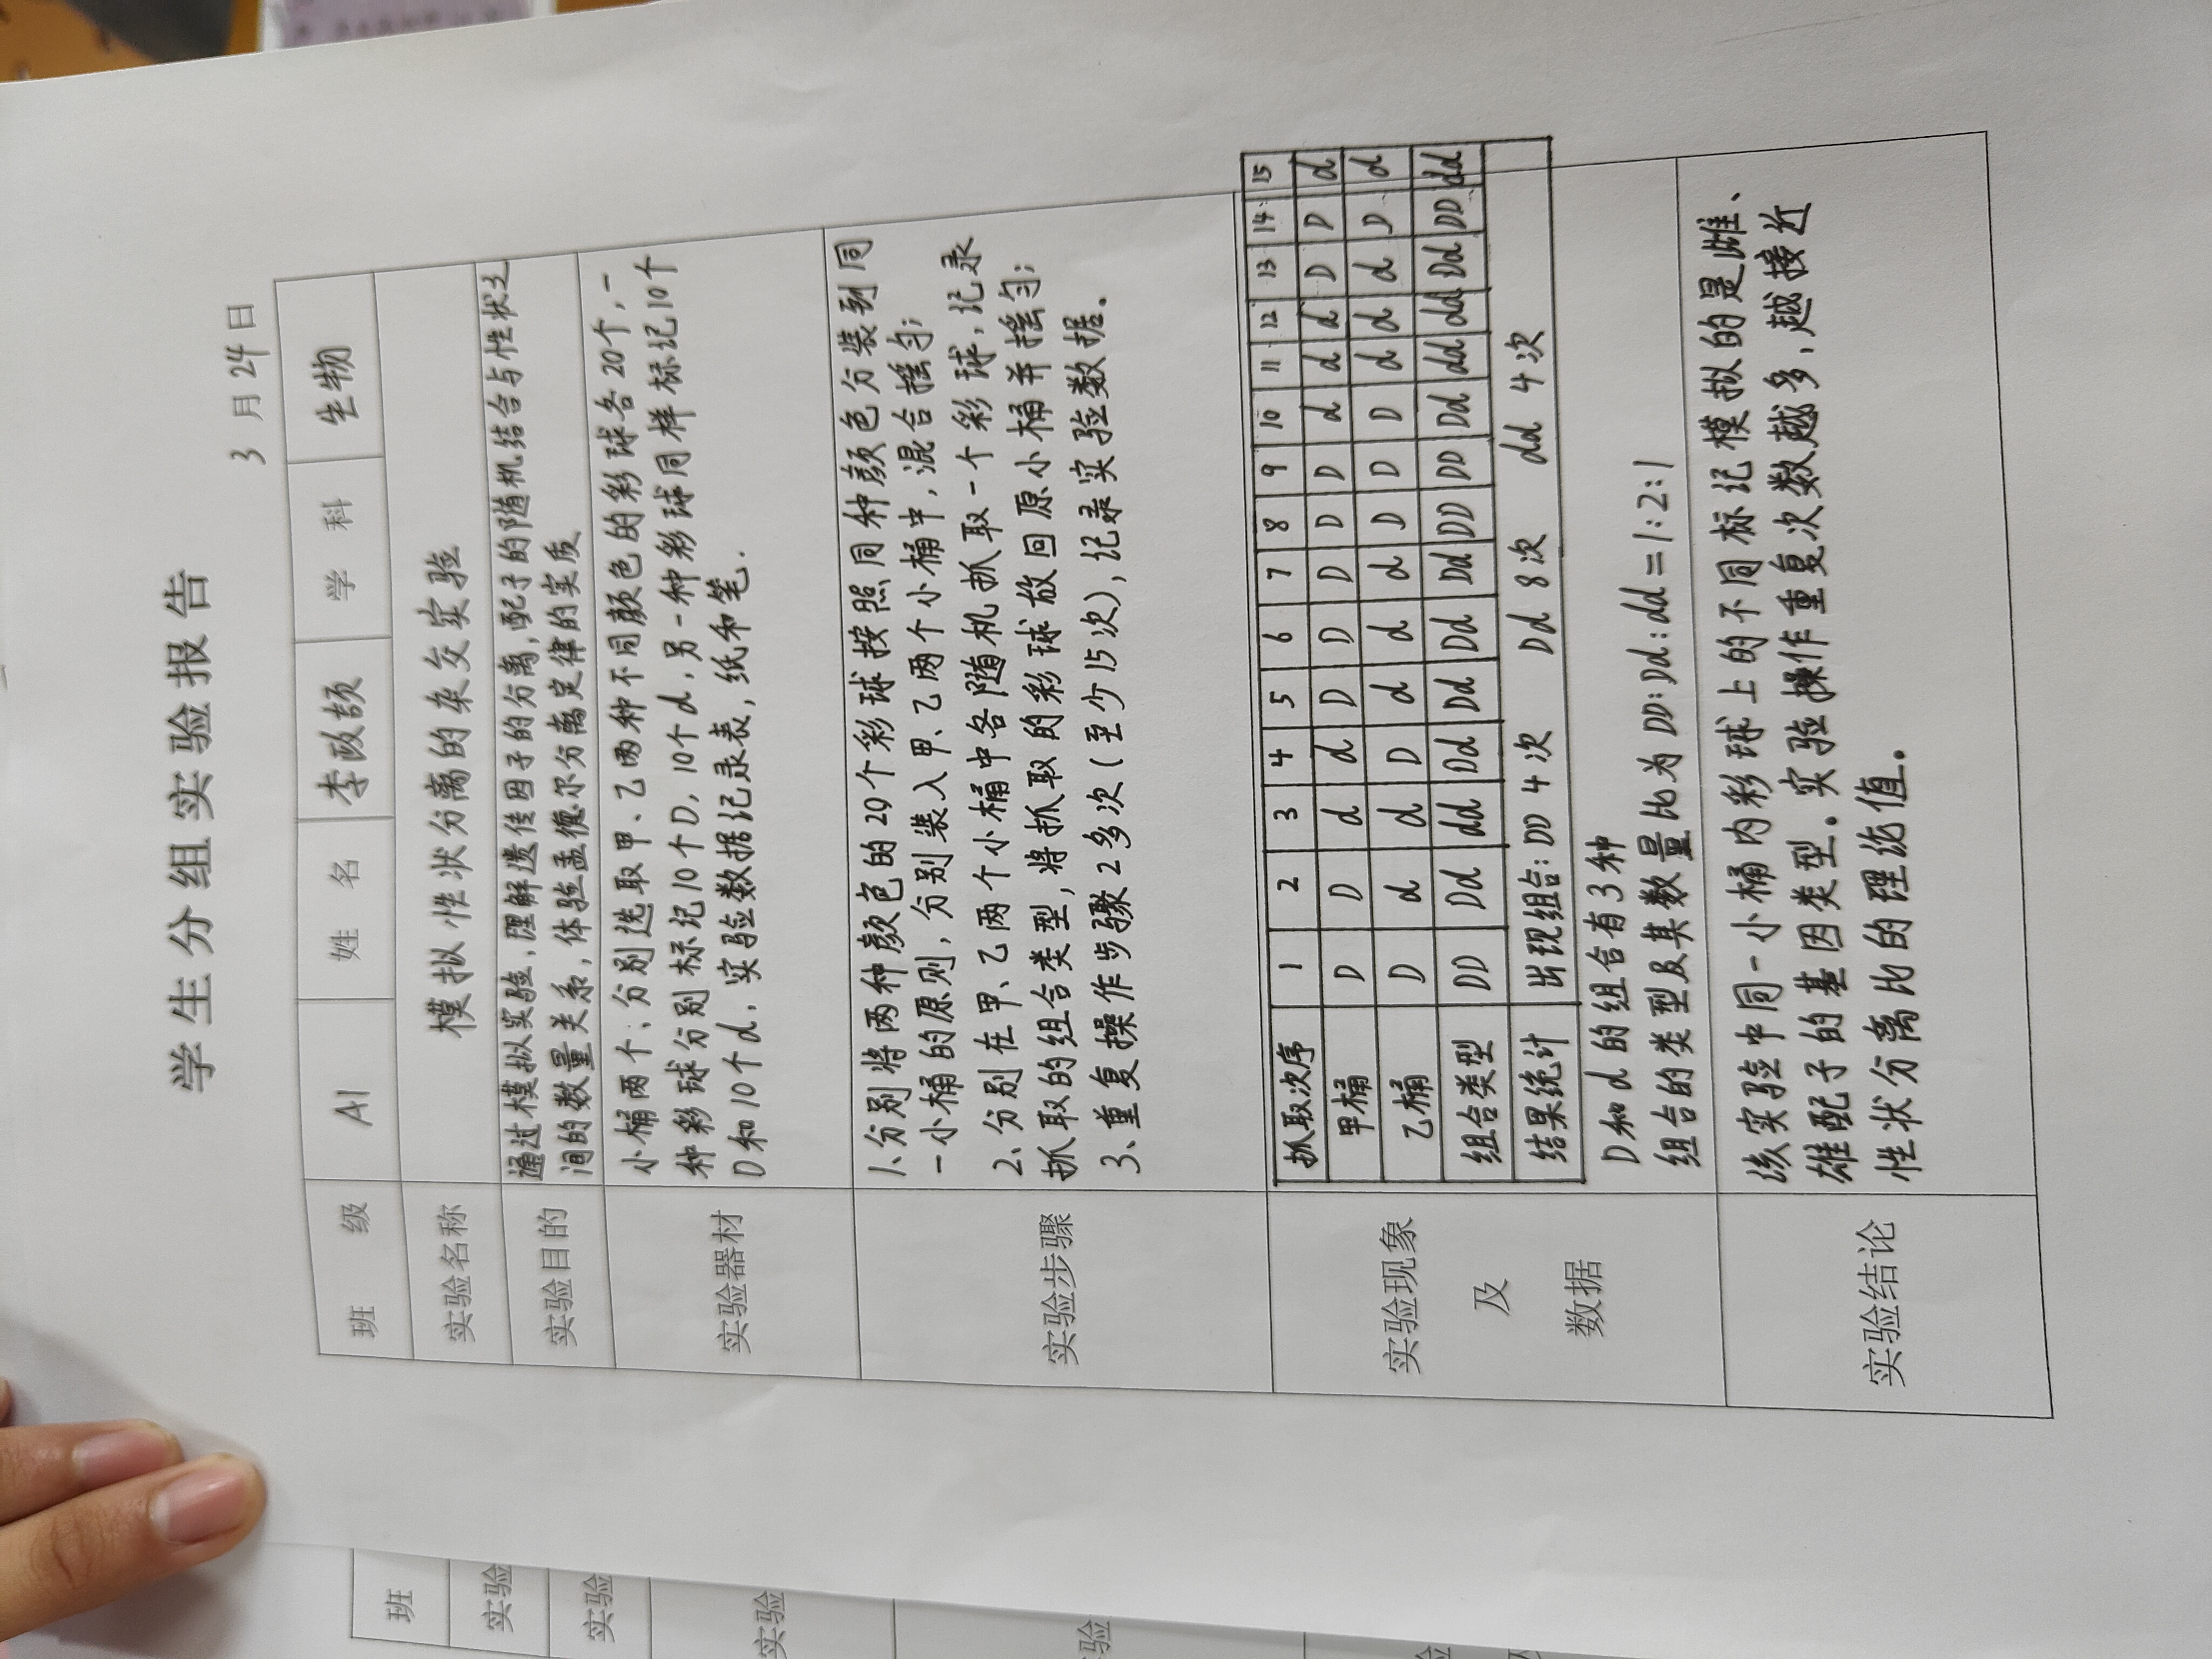 学生分组实验报告
3 月 24 日
班 级 A1 姓 名 李政颉 学 科 生物
实验名称 模拟性状分离的杂交实验
实验目的 通过模拟实验,理解遗传因子的分离,配子的随机结合与性状之
间的数量关系,体验孟德尔分离定律的实质
实验器材 小桶两个、分别选取甲、乙两种不同颜色的彩球各20个,一
种彩球分别标记10个D,10个d,另一种彩球同样标记10个
D和10个d,实验数据记录表,纸和笔.
实验步骤 1、分别将两种颜色的20个彩球按照同种颜色分装到同
一小桶的原则,分别装入甲、乙两个小桶中,混合摇匀;
2、分别在甲、乙两个小桶中各随机抓取一个彩球,记录
抓取的组合类型,将抓取的彩球放回原小桶并摇匀;
3、重复操作步骤2多次(至少15次),记录实验数据。
实验现象
及
数据
抓取次序 1 2 3 4 5 6 7 8 9 10 11 12 13 14 15
甲桶 D D d d D D D D D d d d D D d
乙桶 D d d D d d d D D D d d d D d
组合类型 DD Dd dd Dd Dd Dd Dd DD DD Dd dd dd Dd DD dd
结果统计 出现组合:DD 4次 Dd 8次 dd 4次
D和d的组合有3种
组合的类型及其数量比为DD:Dd:dd=1:2:1
实验结论 该实验中同一小桶内彩球上的不同标记模拟的是雌、
雄配子的基因类型。实验操作重复次数越多,越接近
性状分离比的理论值。
班
实验
实验
实验
验